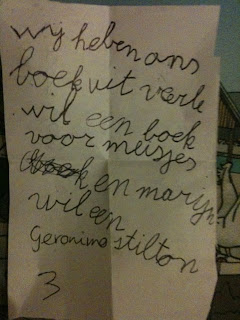 wij heben ons
boek uit verle
wil een boek
voor meisjes
en marijn
wil een
Geronimo stilton
3